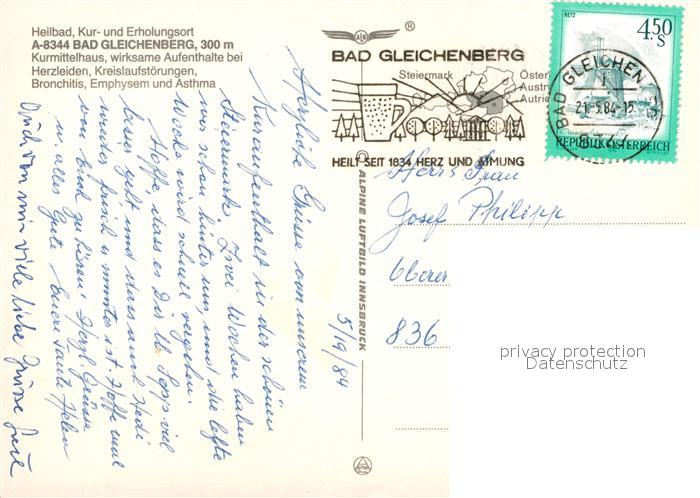 Heilbad, Kur- und Erholungsort
A-8344 BAD GLEICHENBERG, 300 m
Kurmittelhaus, wirksame Aufenthalte bei
Herzleiden, Kreislaufstörungen,
Bronchitis, Emphysem und Asthma
®
BAD GLEICHENBERG
Steiermark
Öster
Austri
Autri
HEILT SEIT 1834 HERZ UND ATMUNG
RETZ
4.50
S
BAD GLEICHEN
21.-5.84-15
REPUBLIK ÖSTERREICH
ALPINE LUFTBILD INNSBRUCK
Herzliche Grüsse von unserem
Kuraufenthalt in der schönen
Steiermark. Zwei Wochen haben
wir schon hinter uns, und die letzte
Woche wird schnell vergehen.
Hoffe, dass es Dir lb. Sepp viel
besser geht und dass auch Hedi
wieder frisch u. munter ist. Hoffe mal
von Euch zu hören. Herzl. Grüsse
u. alles Gute Eure Tante Helen
Auch von mir viele liebe Grüsse
5/19/84
Herrn Frau
Josef Philipp
Oberer
836
privacy protection
Datenschutz